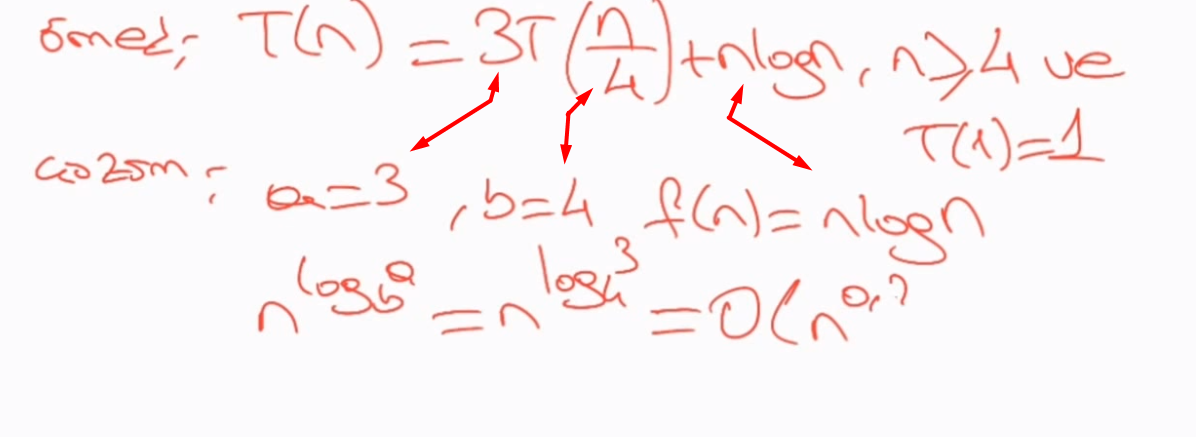 örnek: T(n) = 3T(n/4) + nlogn, n≥4 ve
T(1)=1
çözüm: a=3, b=4 f(n)= nlogn
n^{log_b a} = n^{log_4 3} = O(n^{0,7